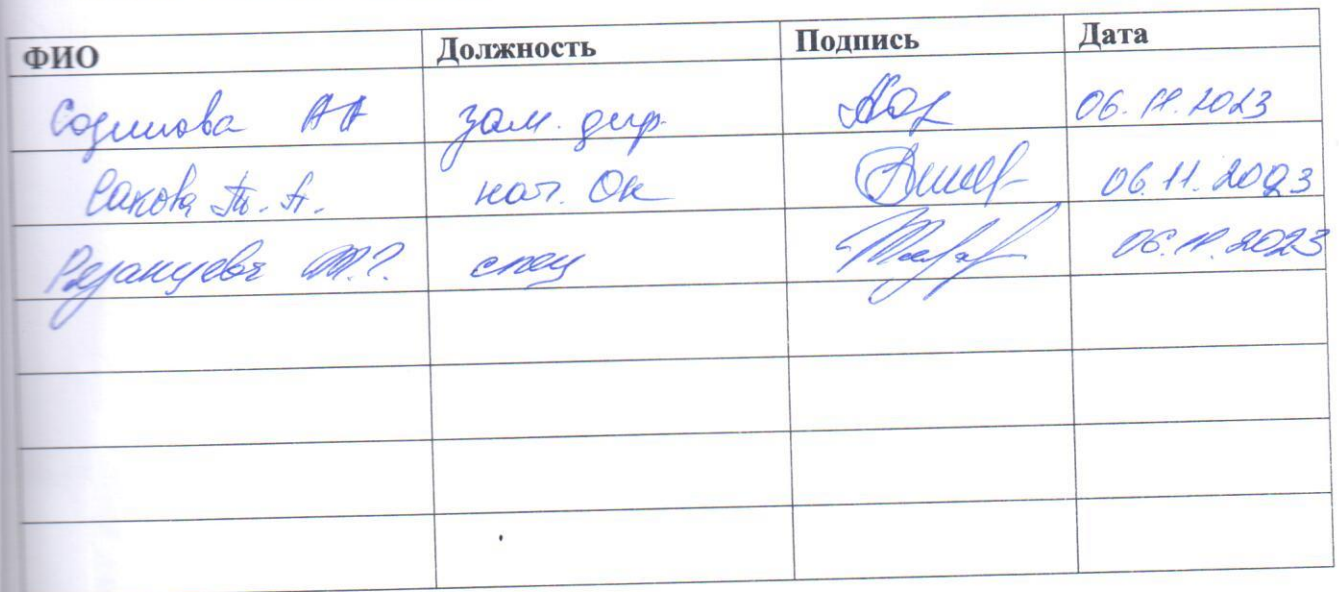 ФИО Должность Подпись Дата
Содикова АА зам. дир. 06.11.2023
Сакова А. нач. Ок 06.11.2023
Рязанцева Т.Г. спец 06.11.2023